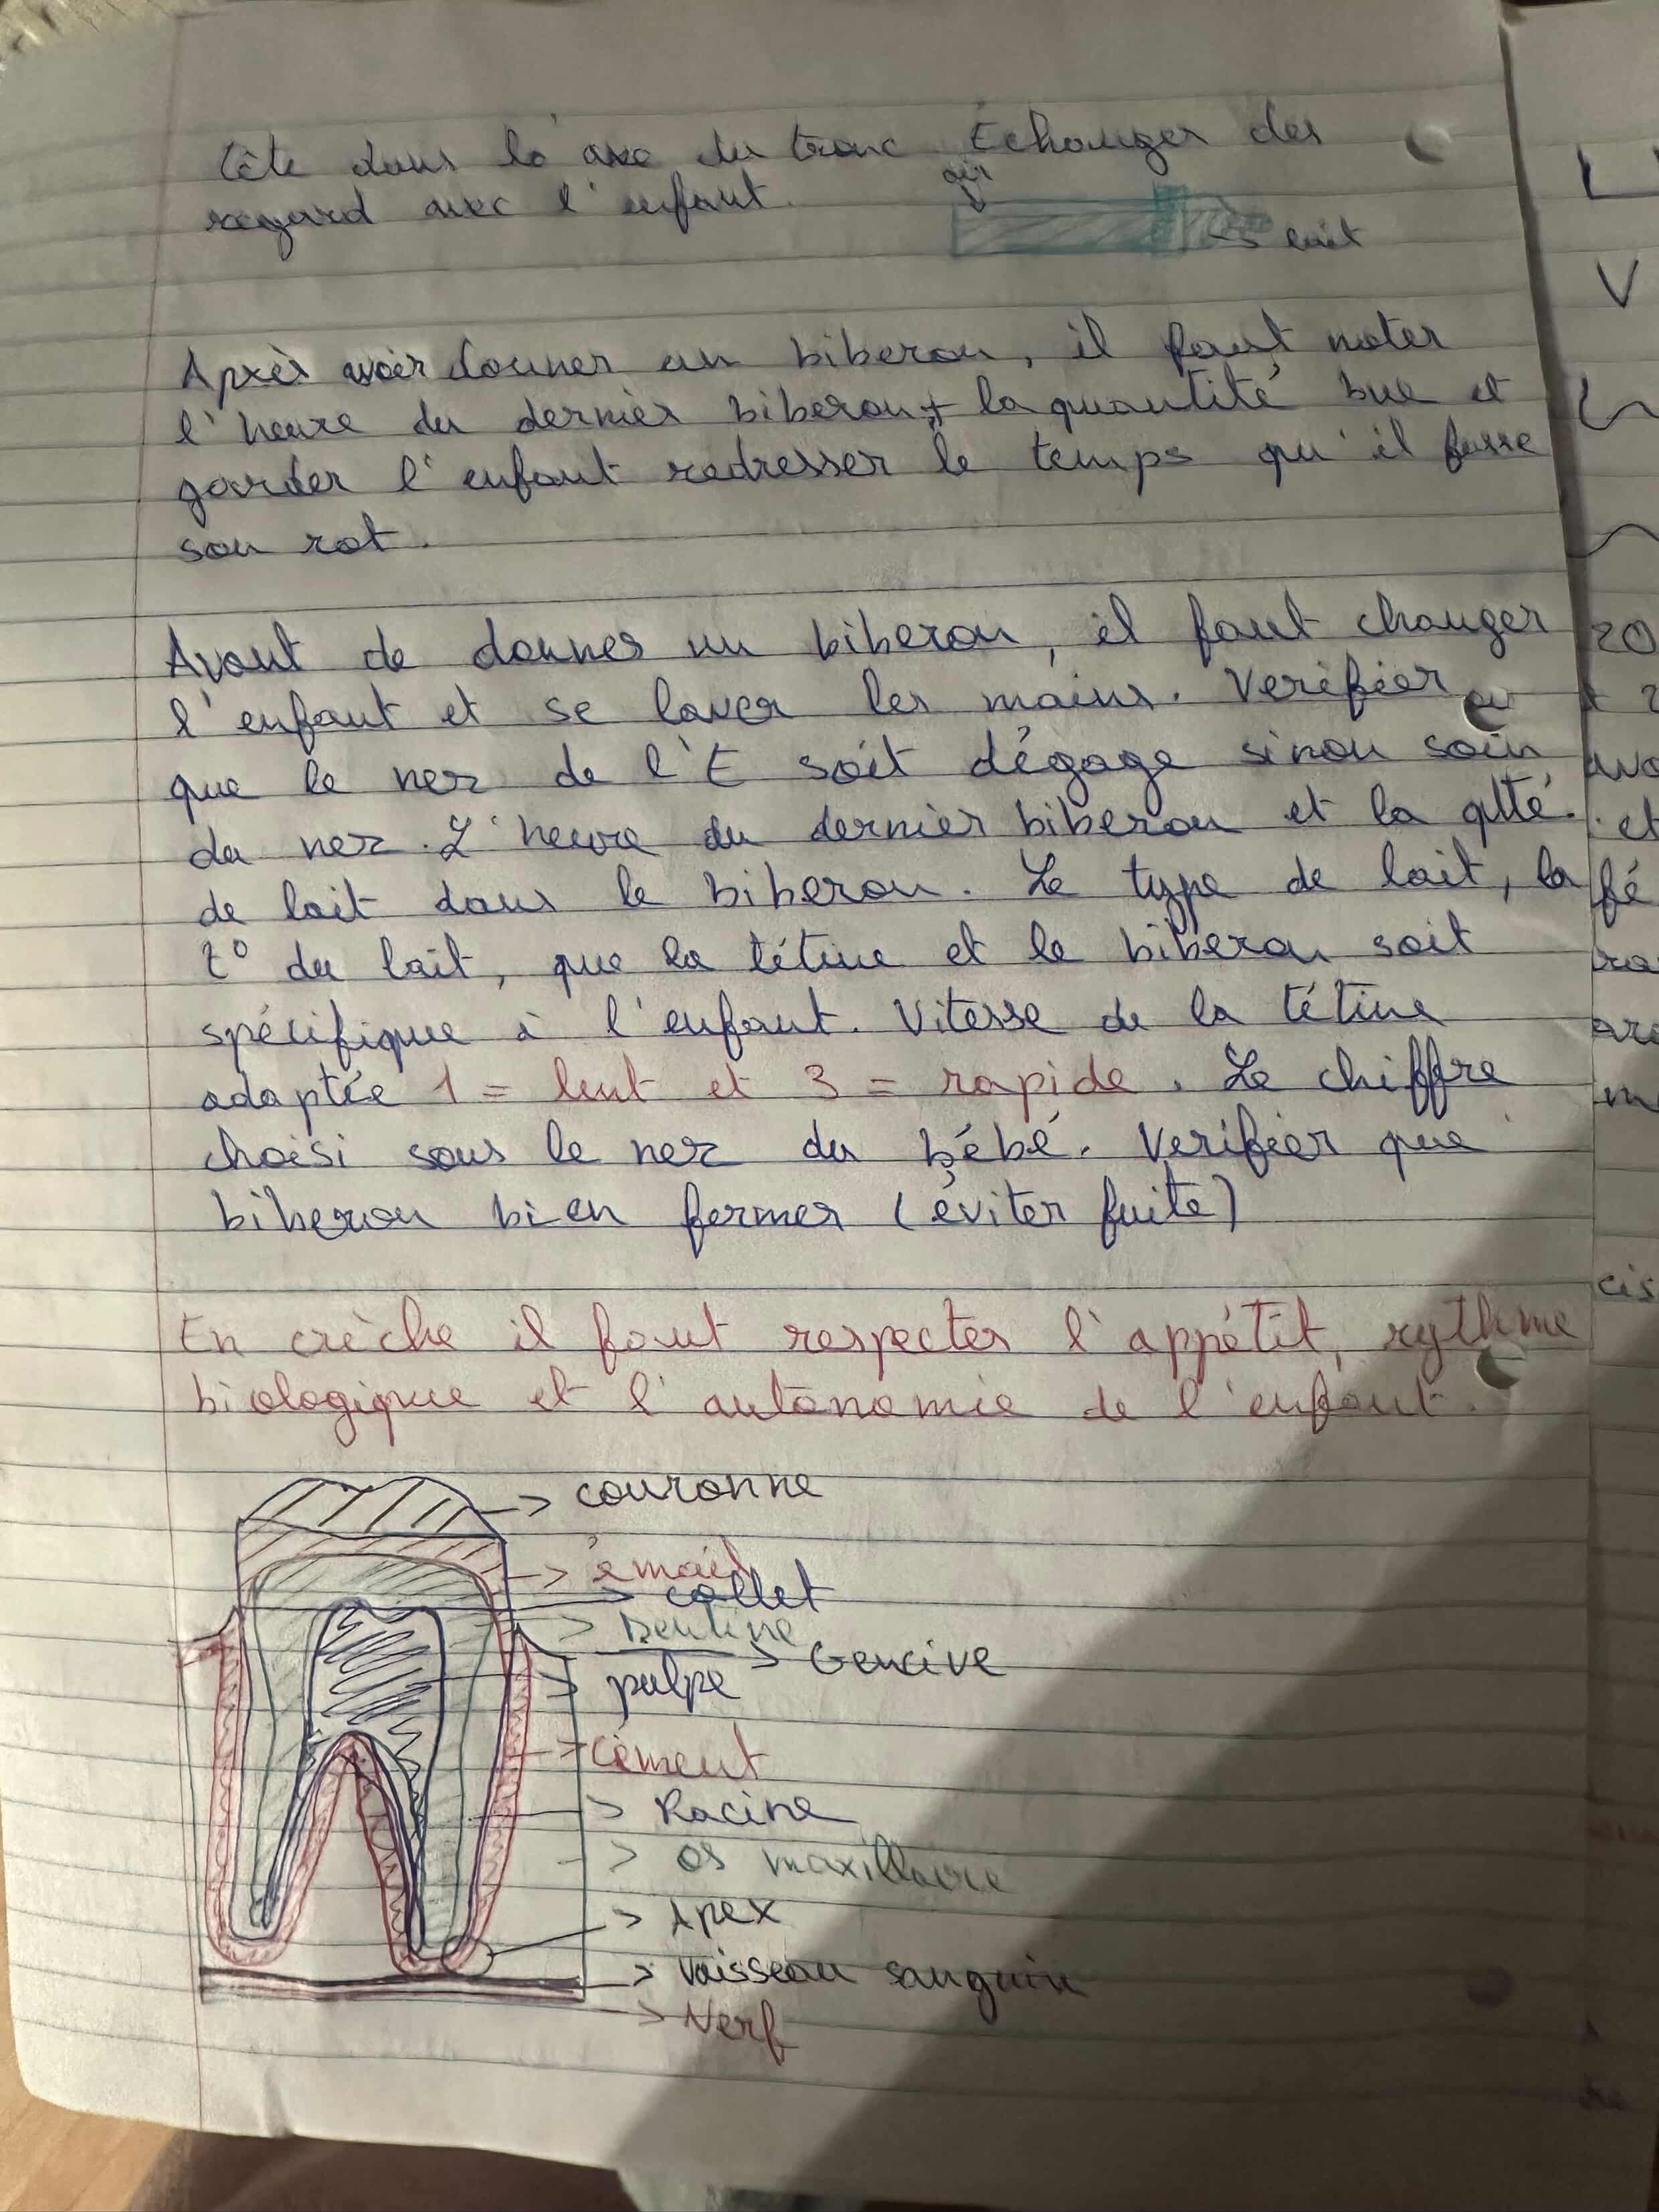 tête dans l'axe du tronc. Échanger des
regard avec l'enfant.
air
-> lait
Après avoir donner un biberon, il faut noter
l'heure du dernier biberon + la quantité bue et
garder l'enfant redresser le temps qu'il fasse
son rot.
Avant de donner un biberon, il faut changer
l'enfant et se laver les mains. Verifier
que le nez de l'E soit dégage sinon soin
du nez. L'heure du dernier biberon et la qtté.
de lait dans le biberon. Le type de lait, la
t° du lait, que la tétine et le biberon soit
spécifique à l'enfant. Vitesse de la tétine
adaptée 1 = lent et 3 = rapide. Le chiffre
choisi sous le nez du bébé. Verifier que
biberon bien fermer (éviter fuite)
En crèche il faut respecter l'appétit, rythme
biologique et l'autonomie de l'enfant.
-> couronne
-> émail
-> collet
-> Dentine
-> Gencive
-> pulpe
-> cément
-> Racine
-> os maxillaire
-> Apex
-> Vaisseau sanguin
-> Nerf